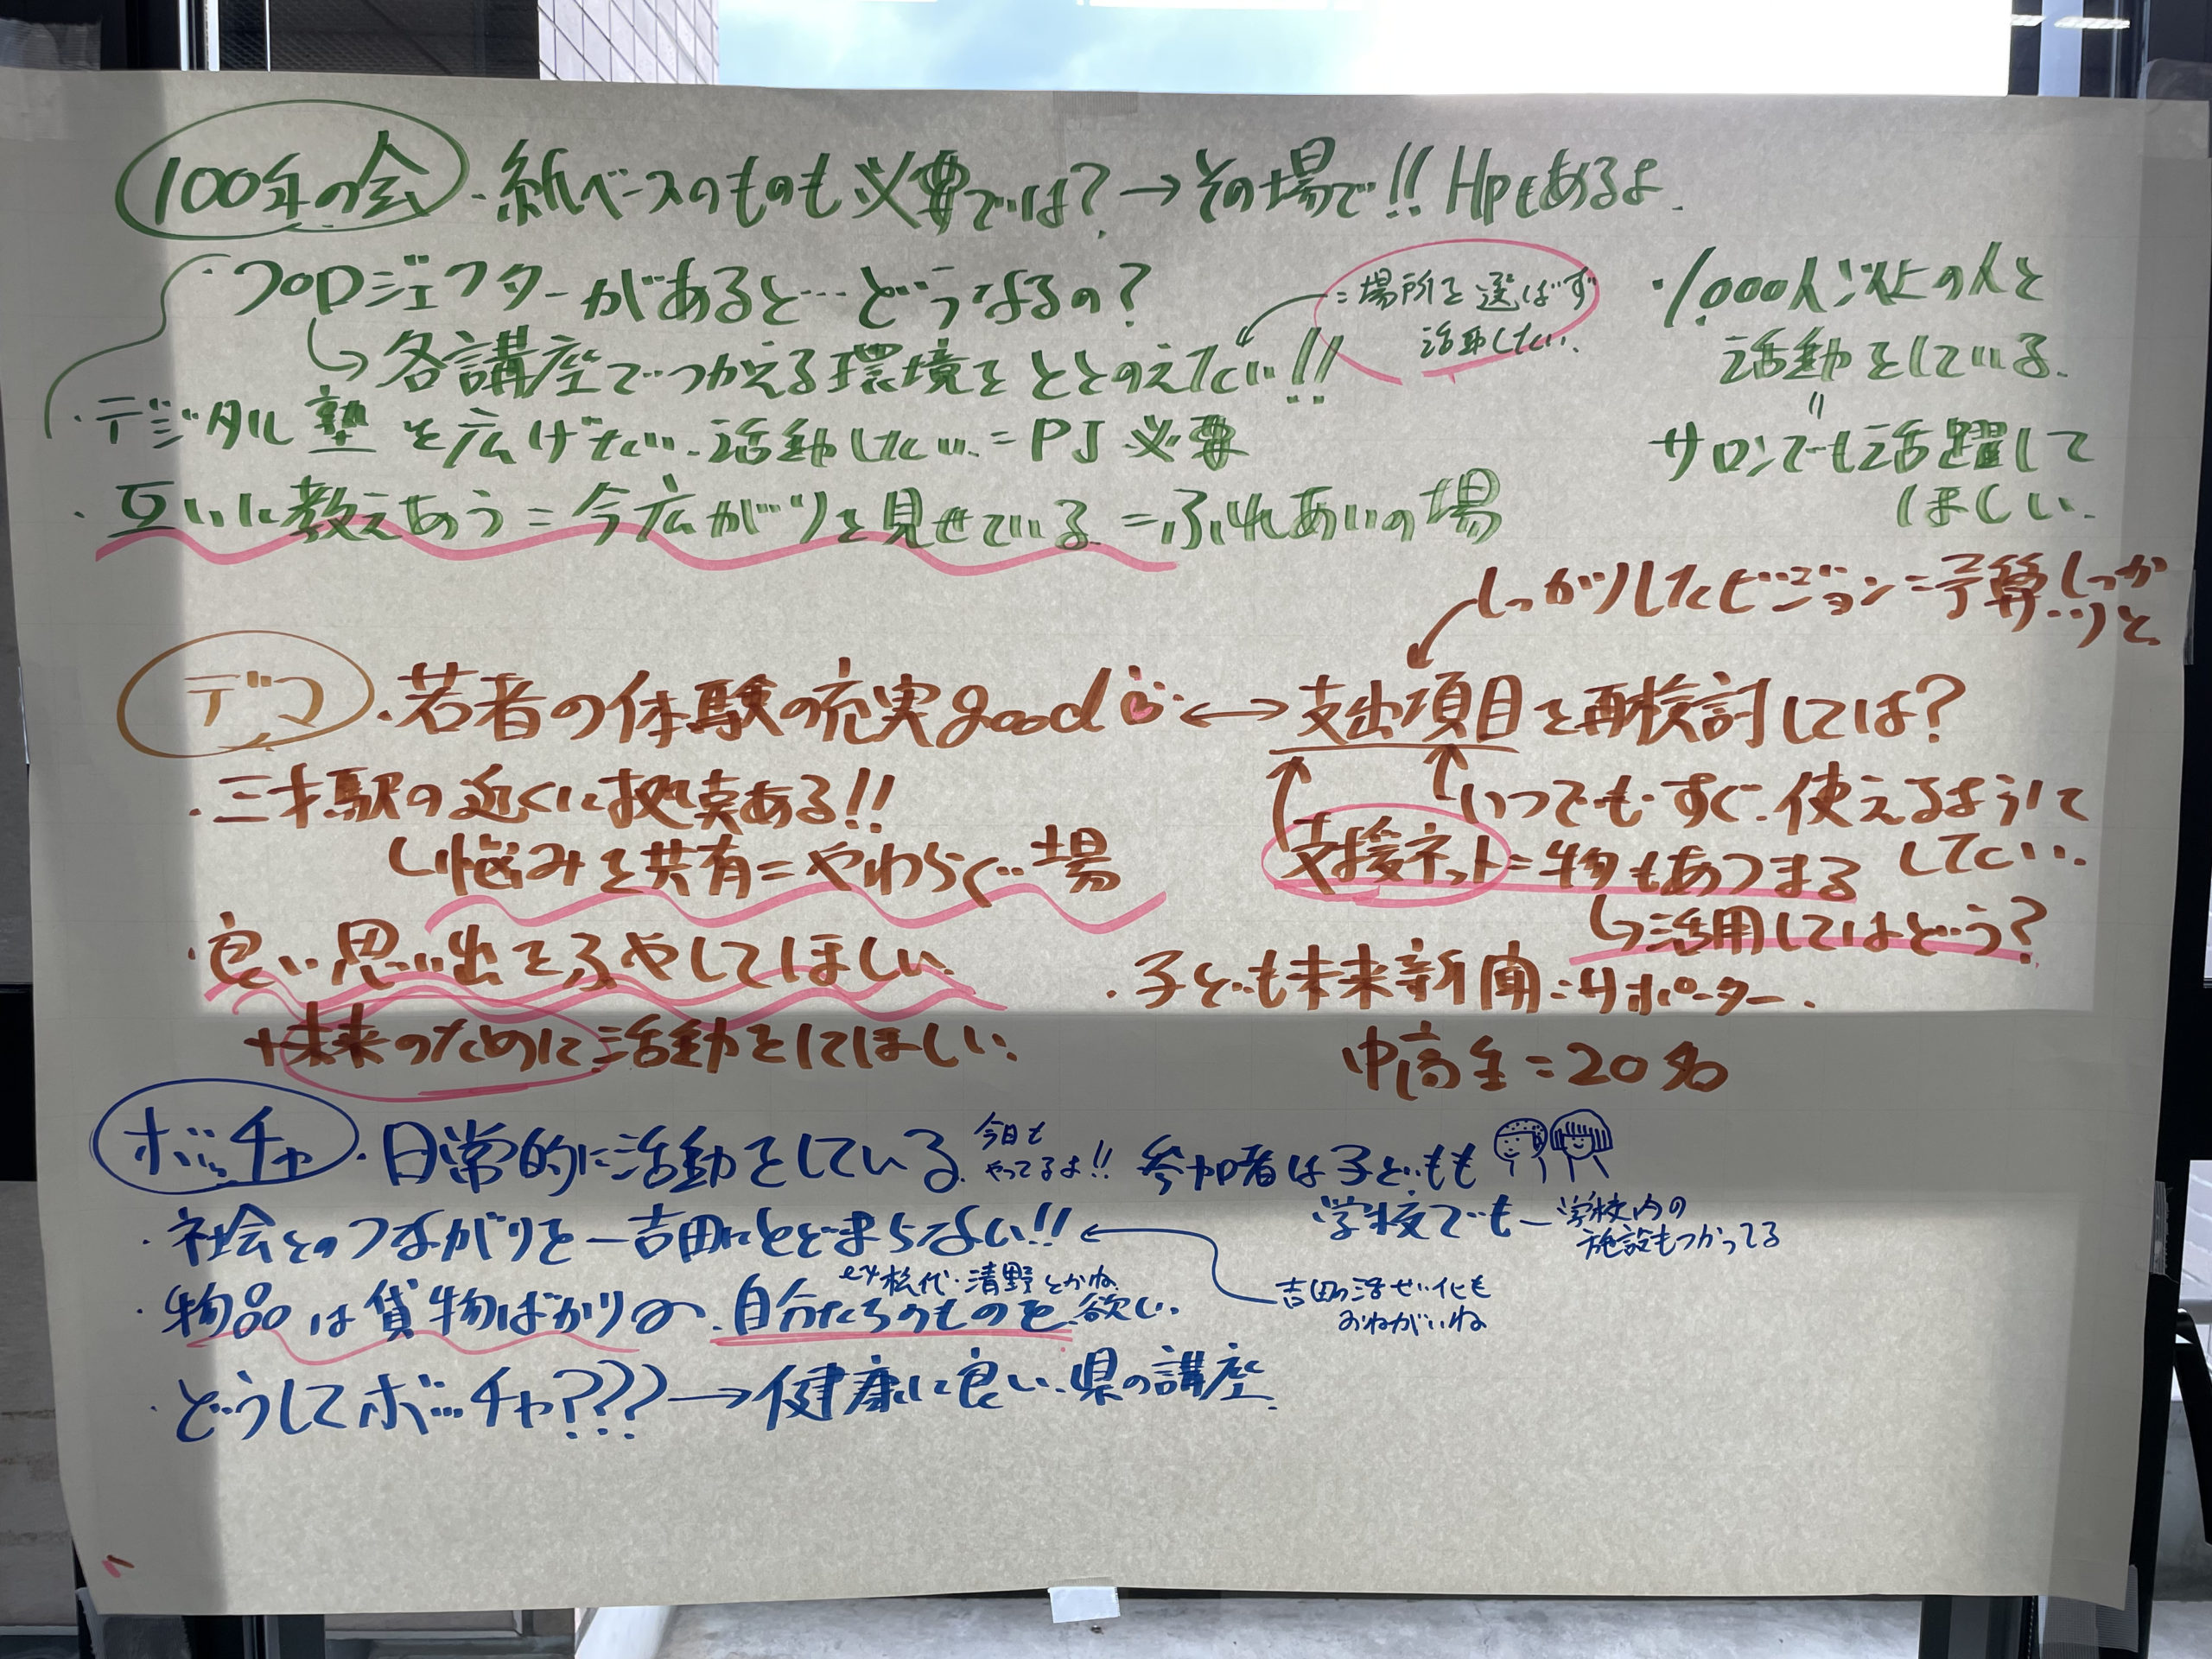 100年の会
・紙ベースのものも必要では?→その場で!! Hpもあるよ.
・プロジェクターがあると…どうなるの?
↳各講座でつかえる環境をととのえたい!!
=場所を選ばず
活動したい、
・デジタル塾を広げたい.活動したい.=PJ必要
・互いに教えあう=今広がりを見せている=ふれあいの場
・1,000人以上の人と
活動をしている.
〃
サロンでも活躍して
ほしい.
しっかりしたビジョン=予算しっか
りと
デマ
・若者の体験の充実good ↔ 支出項目を再検討しては?
・三才駅の近くに拠点ある!!
↳悩みを共有=やわらぐ場
いつでもすぐ使えるようにして
してい.
支援ネット=物もあつまる
↳活用してはどう?
・良い思い出をふやしてほしい
+未来のために活動をしてほしい.
・子ども未来新聞=サポーター.
中高生=20名
ボッチャ
・日常的に活動をしている.
今日も
やってるよ!!
参加者は子どもも
学校でも―学校内の
施設もつかってる
・社会とのつながりを―吉田にとどまらない!!
ex松代・清野とかね
吉田の活せい化も
おねがいね
・物品は貸物ばかり 自分たちのものを欲しい.
・どうしてボッチャ???→健康に良い.県の講座.